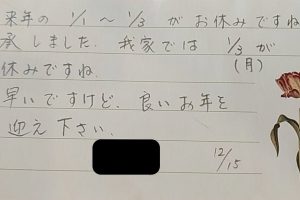 来年の 1/1～1/3 がお休みですね
承しました. 我家では 1/3 が
(月)
休みですね.
早いですけど、良いお年を
迎え下さい.
12/15